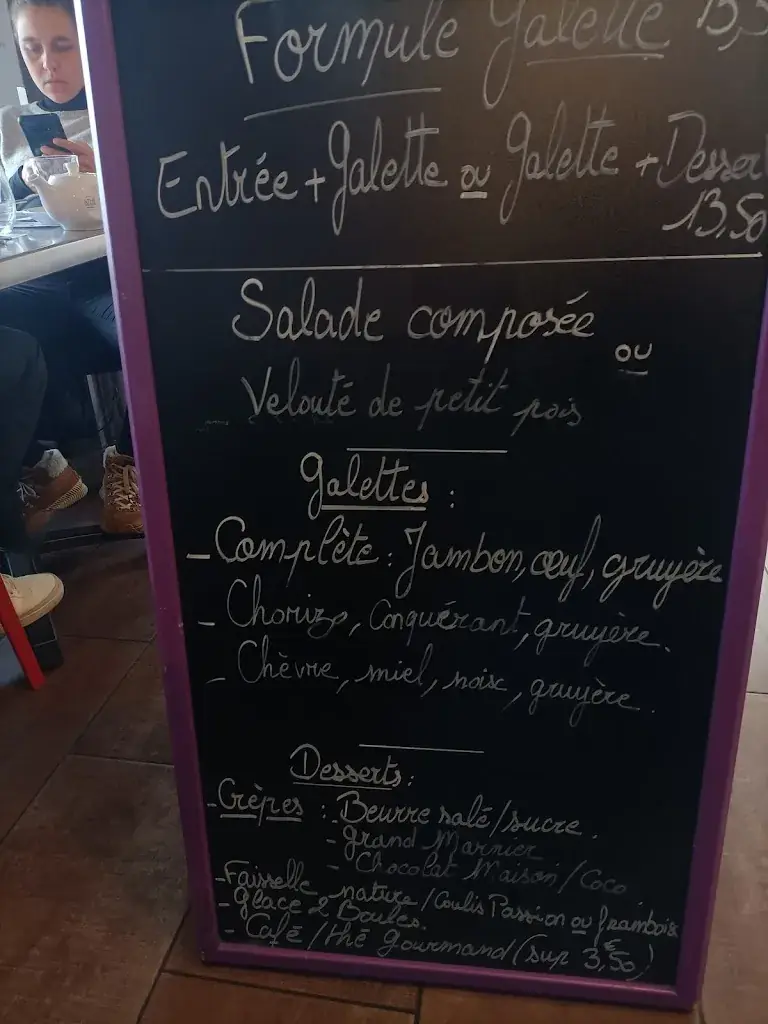 Formule Galette
Entrée + Galette ou Galette + Desser
13,50
Salade composée
ou
Velouté de petit pois
Galettes :
- Complète : Jambon, œuf, gruyère
- Chorizo, Conquérant, gruyère.
- Chèvre, miel, noix, gruyère.
Desserts :
- Crêpes : - Beurre salé/sucre.
- Grand Marnier
- Chocolat Maison/Coco.
- Faisselle nature/Coulis Passion ou framboise
- Glace 2 Boules.
- Café/thé gourmand (sup 3,50€)